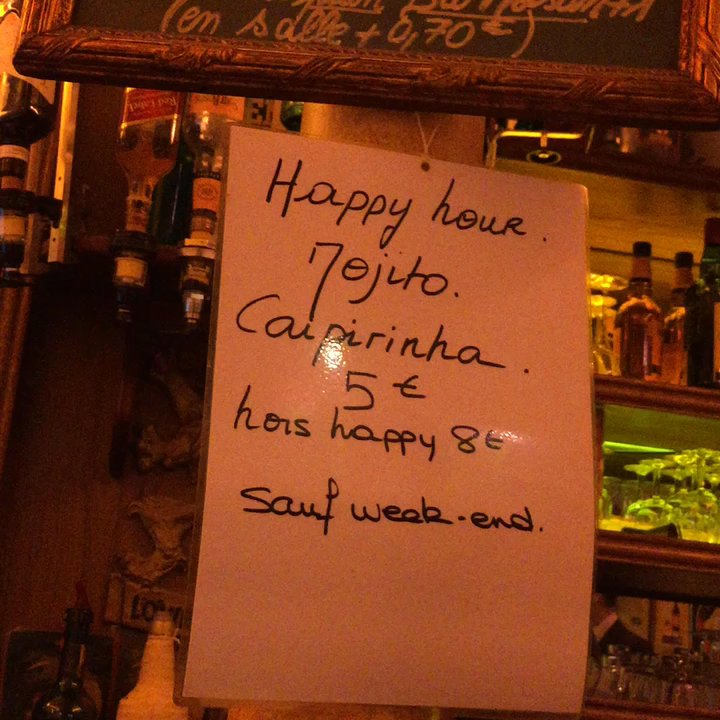 (en salle + 0,70 €)
Red Label
Happy hour.
Mojito.
Caipirinha.
5 €
hors happy 8 €
Sauf week-end.